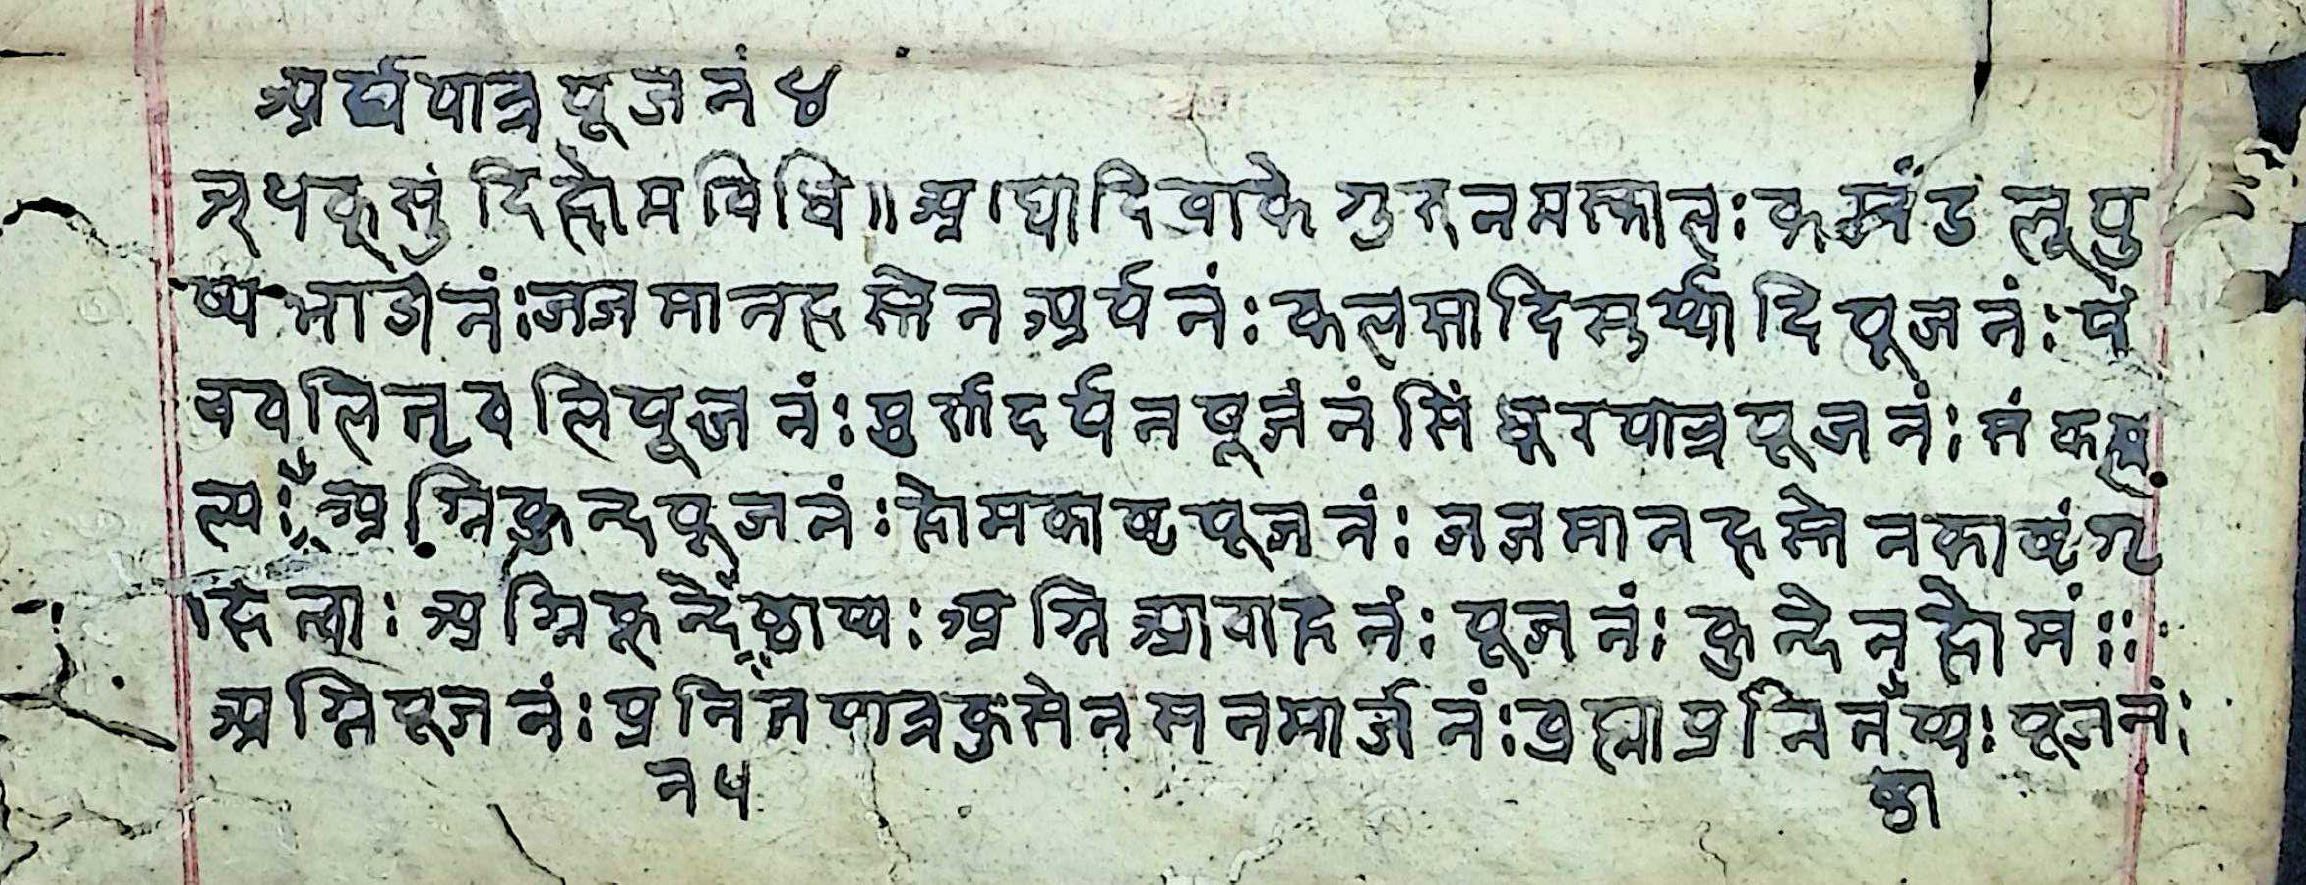 अर्घपात्र पूजनं ४
अथ कूसुंदि होम विधि ॥ अद्यादि वाके गुरुनमस्काल : कमंडलू पु
ष्प भाजनं : जजमान हस्तेन अर्घनं : कलसादि सूर्य्यादि पूजनं : पं
चवलि तृवलि पूजनं : दर्पन पूजनं सिंधूर पात्र पूजनं : संक
ल्प : अग्निकुन्द पूजनं : होमकाष्ठ पूजनं : जजमान हस्तेन काष्ठं गृ
हित्वा : अग्निकुन्दे स्थाप्य : अग्नि आवाहनं : पूजनं : कुन्देन होमं : :
अग्नि पूजनं : प्रनित पात्र कुसेन सनमार्जनं : व्रह्मा प्रनितं ष्य : पूजनं :
न ५ स्था